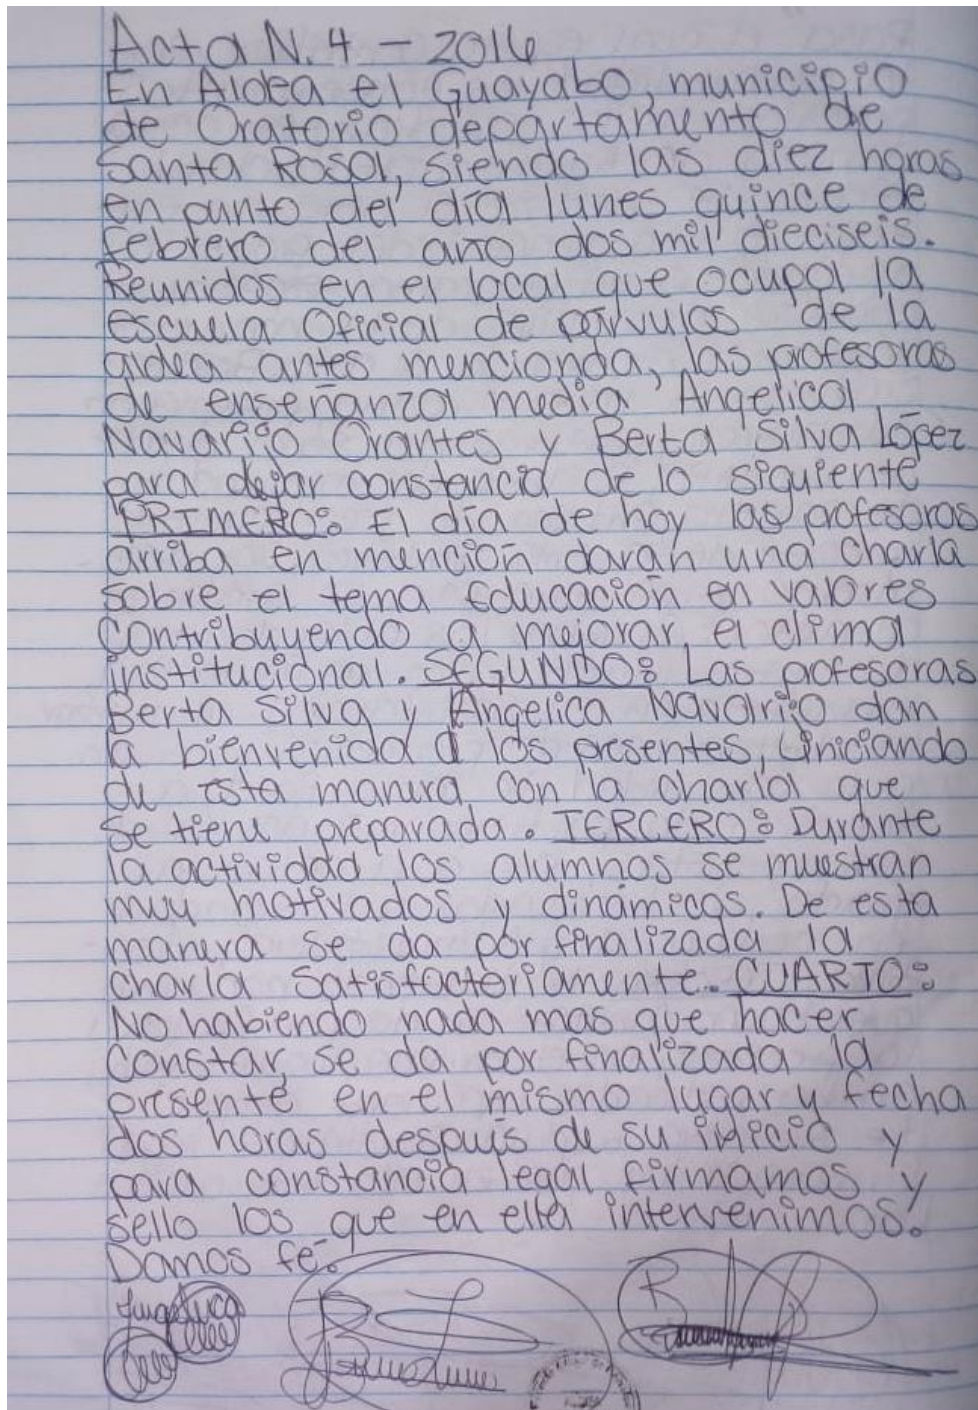 Acta N. 4 - 2016
En Aldea el Guayabo, municipio
de Oratorio departamento de
Santa Rosa, siendo las diez horas
en punto del día lunes quince de
febrero del año dos mil dieciseis.
Reunidos en el local que ocupa la
escuela Oficial de párvulos de la
aldea antes mencionda, las profesoras
de enseñanza media Angelica
Navarijo Orantes y Berta Silva López
para dejar constancia de lo siguiente
PRIMERO: El día de hoy las profesoras
arriba en mención darán una charla
sobre el tema Educación en valores
Contribuyendo a mejorar el clima
institucional. SEGUNDO: Las profesoras
Berta Silva y Angelica Navarijo dan
la bienvenida a los presentes, iniciando
de esta manera con la charla que
se tiene preparada. TERCERO: Durante
la actividad los alumnos se muestran
muy motivados y dinámicos. De esta
manera se da por finalizada la
charla Satisfactoriamente. CUARTO:
No habiendo nada mas que hacer
Constar, se da por finalizada la
presente en el mismo lugar y fecha
dos horas después de su inicio y
para constancia legal firmamos y
sello los que en ella intervenimos.
Damos fé.